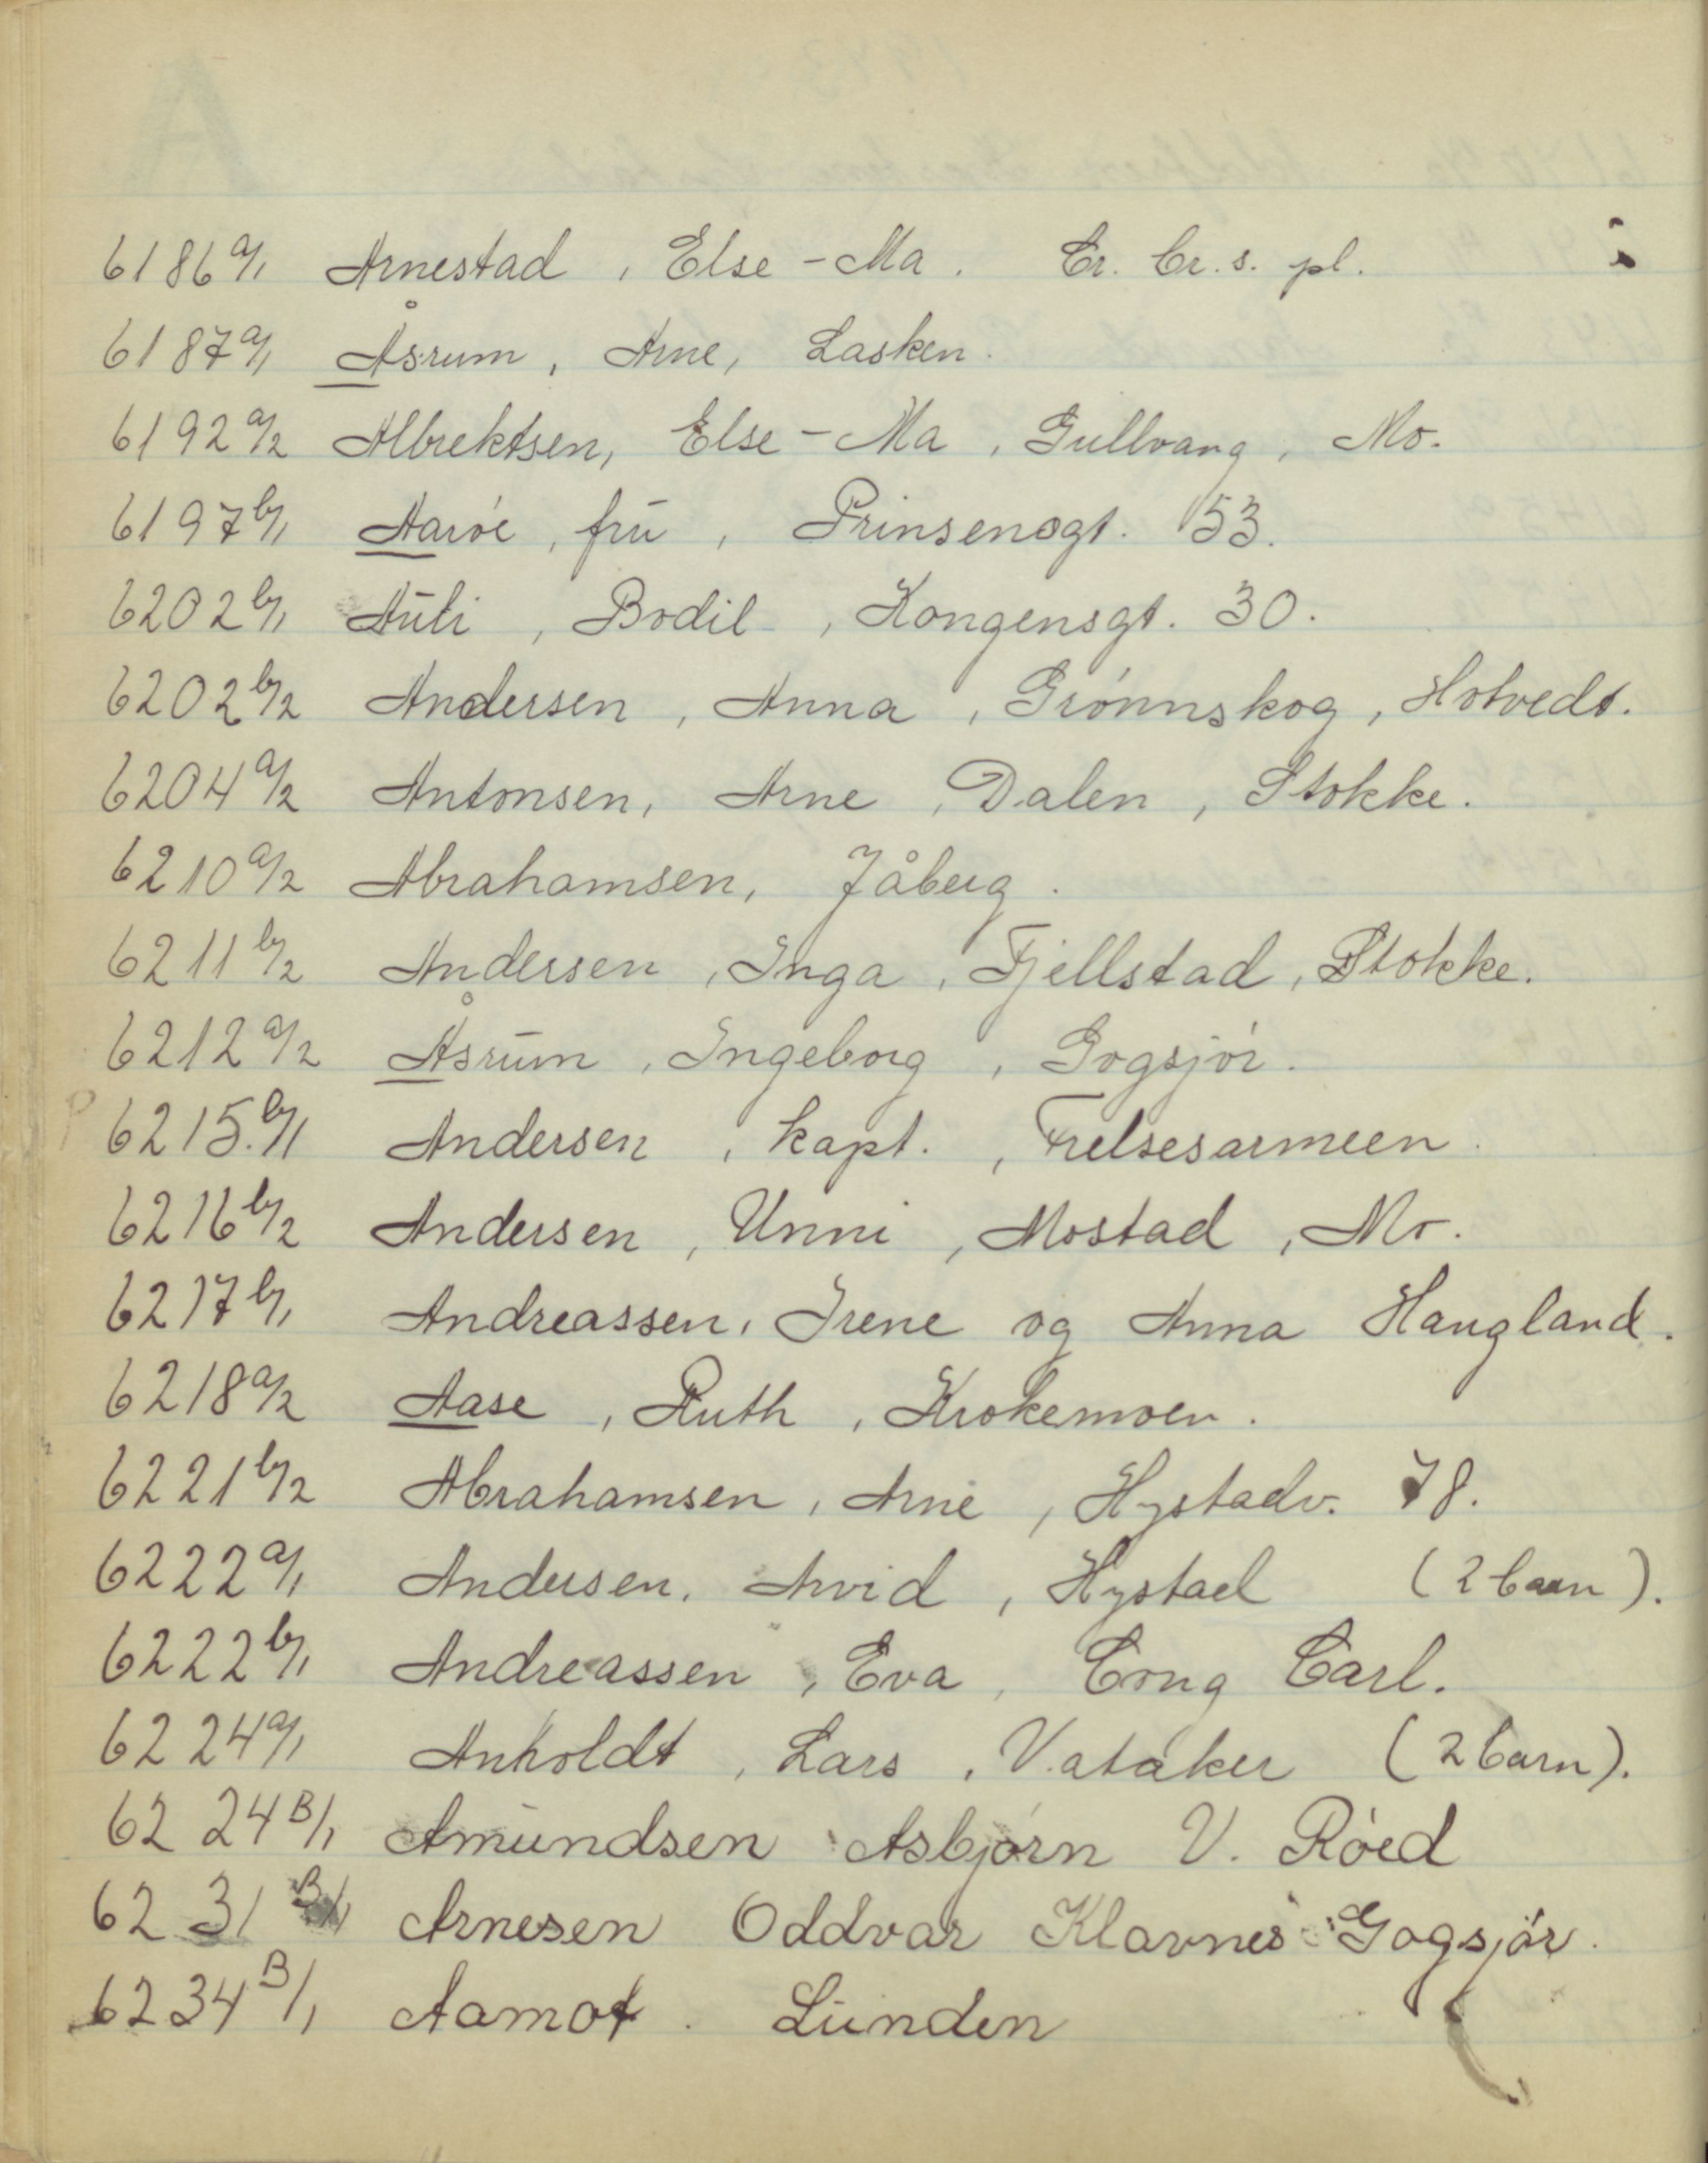 6186 a/1 Arnestad, Else-Ma. Cr. Cr. s. pl.
6187 a/1 Åsrum, Arne, Lasken.
6192 a/2 Albrektsen, Else-Ma, Gullvang, Mo.
6197 b/1 Aarøe, frū, Prinsensgt. 53.
6202 b/1 Aūli, Bodil, Kongensgt. 30.
6202 b/2 Andersen, Anna, Grønnskog, Hotvedt.
6204 a/2 Antonsen, Arne, Dalen, Stokke.
6210 a/2 Abrahamsen, Jåberg.
6211 b/2 Andersen, Inga, Fjellstad, Stokke.
6212 a/2 Åsrūm, Ingeborg, Gogsjør.
6215. b/1 Andersen, kapt., Frelsesarmeen.
6216 b/2 Andersen, Unni, Mostad, Mo.
6217 b/1 Andreassen, Irene og Anna Haugland.
6218 a/2 Aase, Ruth, Krokemoen.
6221 b/2 Abrahamsen, Arne, Hystadv. 78.
6222 a/1 Andersen, Arvid, Hystad (2 barn).
6222 b/1 Andreassen, Eva, Cong Carl.
6224 a/1 Anholdt, Lars, Vataker (2 barn).
6224 B/1 Amūndsen Asbjørn V. Røed
6231 B/1 Arnesen Oddvar Klavnes Gogsjør.
6234 B/1 Aamot. Lūnden